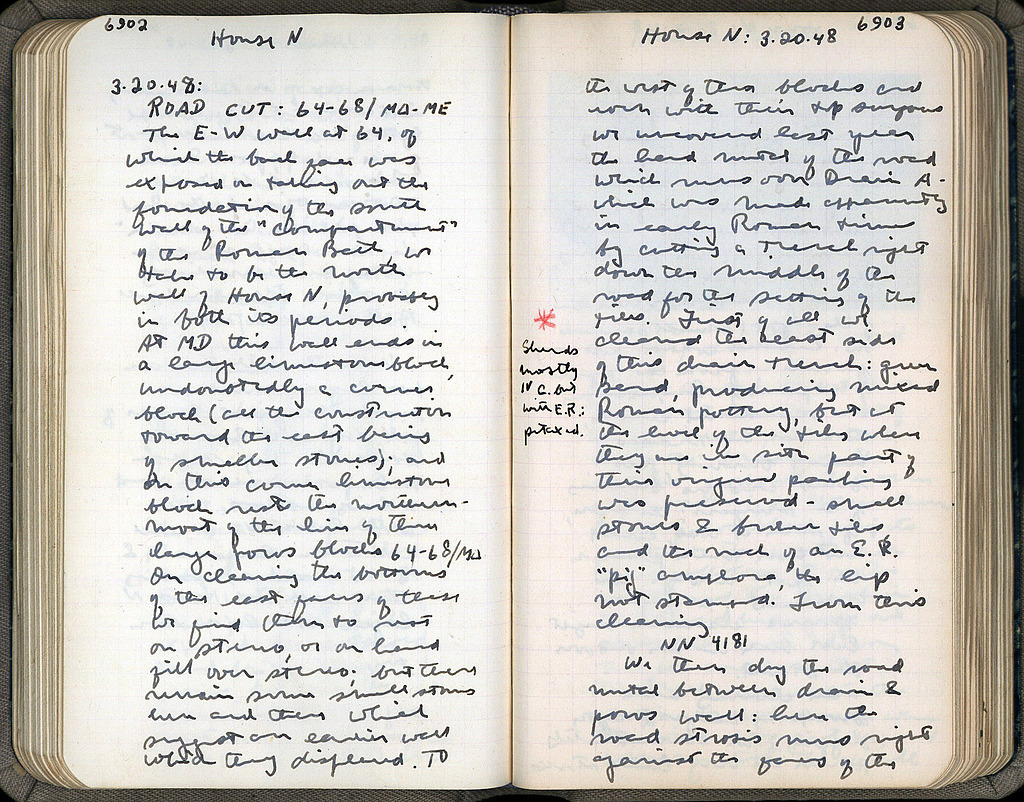 6902
House N
3.20.48:
ROAD CUT: 64-68/ΜΔ-ΜΕ
The E-W wall at 64, of
which the back face was
exposed on taking out the
foundation of the south
wall of the "compartment"
of the Roman Bath, we
take to be the north
wall of House N, probably
in both its periods.
At ΜΔ this wall ends in
a large limestone block,
undoubtedly a corner
block (all the construction
toward the east being
of smaller stones); and
on this corner limestone
block rests the northern-
most of the line of three
large poros blocks 64-68/ΜΔ
On cleaning the bottoms
of the east faces of these
we find them to rest
on stereo, or on hard
fill over stereo; but there
remain some small stones
here and there which
suggest an earlier wall
which they displaced. To
6903
House N: 3.20.48
the west of these blocks and
even with their top surfaces
we uncovered last year
the hard metal of the road
which runs over Drain A -
which was made apparently
in early Roman times
by cutting a trench right
down the middle of the
road for the setting of the
tiles. First of all we
cleaned the east side
of this drain trench: green
sand, producing mixed
Roman pottery, but at
the level of the tiles where
they are in situ part of
their original packing
was preserved - small
stones & broken tiles
and the neck of an E.R.
"pig" amphora, the lip
not stamped. From this
cleaning
NN 4181
We then dug the road
metal between drain &
poros wall: here the
road strosis runs right
against the faces of the
*
Sherds
mostly
IV c. but
with E.R.: